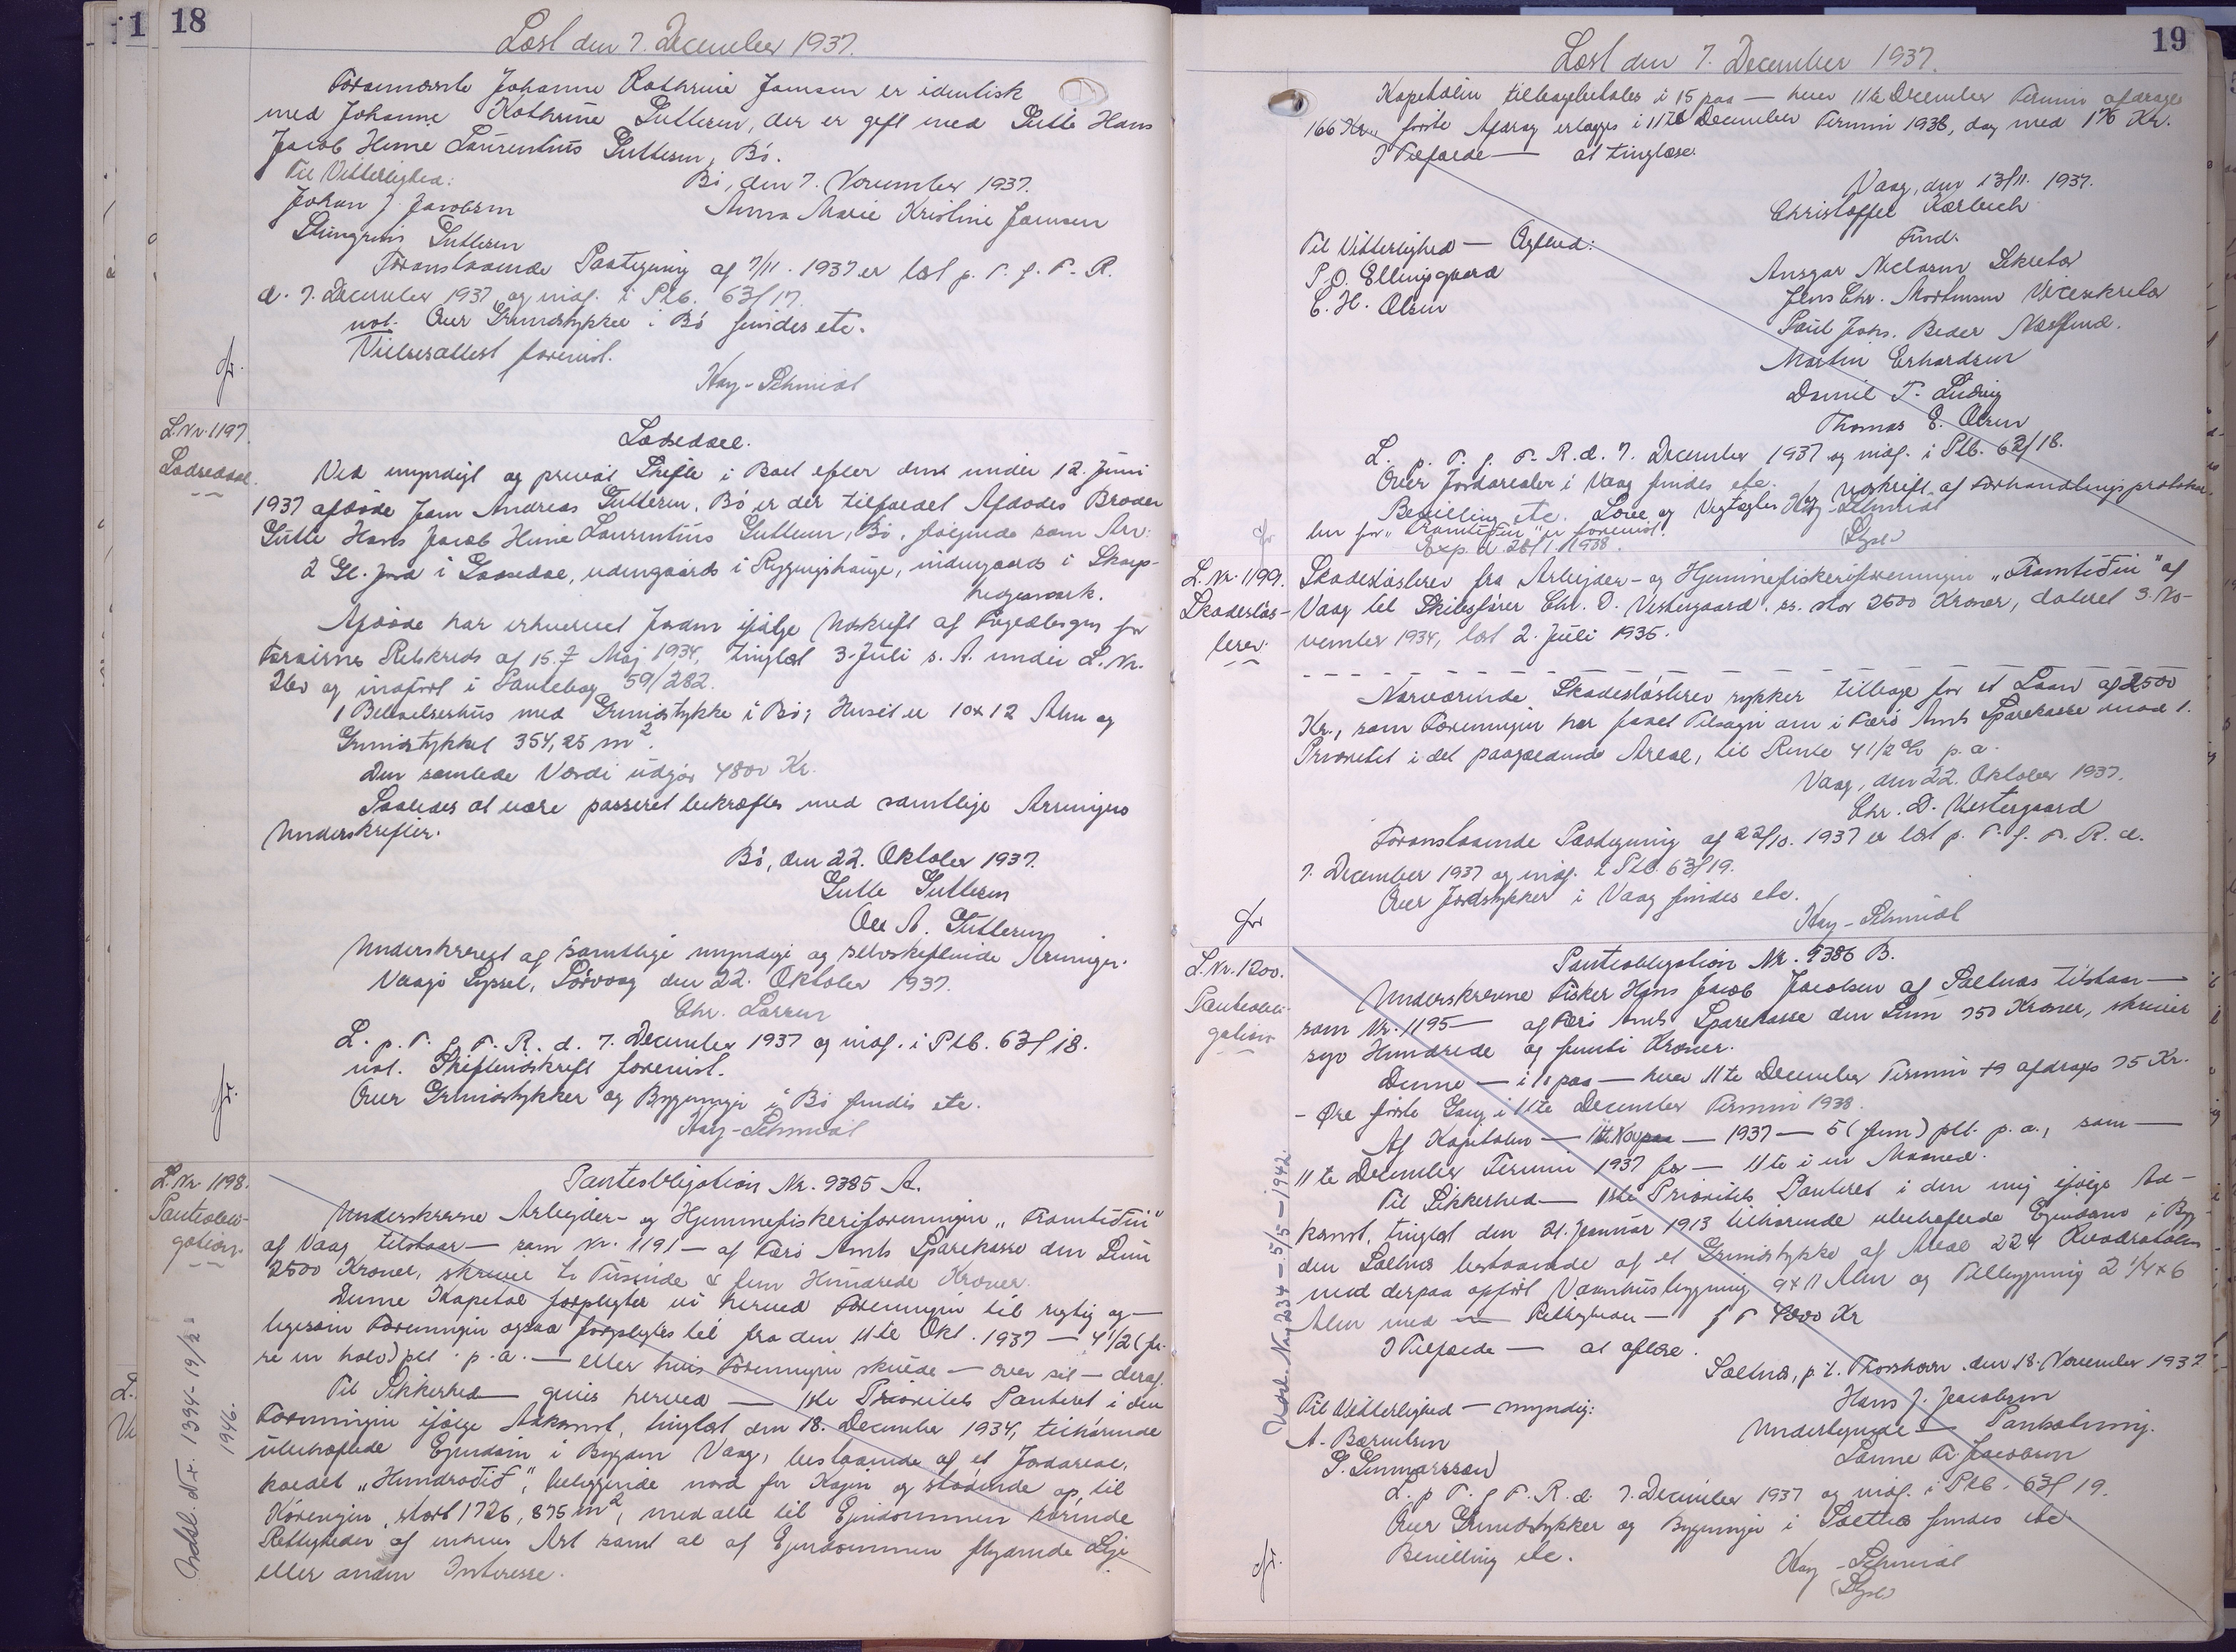 18
Læst den 7. December 1937.
Førnævnte Johanne Kathrine Jensen er identisk
med Johanne Kathrine Gutlesen, der er gift med Gutle Hans
Jacob Heine Laurentius Gutlesen, Bø.
Til Vitterlighed:
Bø, den 7. November 1937.
Johan J. Jacobsen
Anna Marie Kristine Joensen
Gutlesen
Foranstaaende Paategning af 7/11. 1937 er læst p. T. f. F. R.
d. 7. December 1937 og indf. i Ptb. 63/17.
not. Over Grundstykker i Bø findes etc.
Vielsesattest forevist.
Kay-Schmidt
fr.
L.Nr.1197.
Lodseddel.
Lodseddel.
Ved myndigt og privat Skifte i Boet efter den under 12. Juni
1937 afdøde Joen Andreas Gutlesen, Bø er der tilfaldet Afdødes Broder
Gutle Hans Jacob Heine Laurentius Gutlesen, Bø, følgende som Arv:
2 Gl. Jord i Gaasedal, udengaards i Rygningshauge, indengaards i Skarps-
hegnsmark.
Afdøde har erhvervet Jorden ifølge Udskrift af Fogedbogen for
Færøernes Retskreds af 15. Maj 1934, tinglæst 3. Juli s. A. under L. Nr.
og indført i Pantebog 59/282.
1 Beboelseshus med Grundstykke i Bø; Huset er 10 x 12 Alen og
Grundstykket 354,25 m2.
Den samlede Værdi udgør 4800 Kr.
Saaledes at være passeret bekræftes med samtlige Arvingers
Underskrifter.
Bø, den 22. Oktober 1937.
Gutle Gutlesen
Ole A. Gutlesen
Underskrevet af samtlige myndige og selvskiftende Arvinger.
Vaagø Syssel, Sørvaag den 22. Oktober 1937.
Chr. Larsen
L. p. T. f. F. R. d. 7. December 1937 og indf. i Ptb. 63/18.
not. Skifteudskrift forevist.
Over Grundstykker og Bygninger i Bø findes etc.
Kay-Schmidt
fr.
L.Nr. 1198.
Panteobli-
gation.
Panteobligation Nr. 9385 A.
Underskrevne Arbejder- og Hjemmefiskeriforeningen „Framtíðin"
af Vaag tilstaar — som Nr. 1191 — af Færø Amts Sparekasse den Sum
2500 Kroner, skriver to Tusinde & fem Hundrede Kroner.
Denne Kapital forpligter vi herved Foreningen til rigtig og —
ligesom Foreningen ogsaa forpligtes til fra den 11te Okt. 1937 — 4 1/2 (fi-
re en halv) pct. p. a. — eller hvis Foreningen skulde — over sit — deraf.
Til Sikkerhed — gives herved — 1ste Prioritets Panteret i den
Foreningen ifølge Adkomst, tinglæst den 18. December 1934, tilhørende
ubehæftede Ejendom i Bygden Vaag, bestaaende af et Jordareal,
kaldet „Hundraðið", beliggende nord for Kajen og stødende op til
Kørevejen, stort 1726,875 m2, med alle til Ejendommen hørende
Rettigheder af enhver Art samt al af Ejendommen flydende Leje
eller anden Interesse.
Udsl. Nr. 1394 - 19/2
1946.
19
Læst den 7. December 1937.
Kapitalen tilbagebetales i 15 paa — hver 11te December Termin afdrages
166 Kr., første Afdrag erlægges i 11te December Termin 1938, dog med 176 Kr.
I Tilfælde — at tinglæse.
Vaag, den 13/11. 1937.
Christoffel Kærbech
Fmd.
Til Vitterlighed — Ægthed:
P. O. Ellingsgaard
Ansgar Niclasen Sekretær
C. H. Olsen
Jens Chr. Mortensen Vicesekretær
Poul Johs. Beder Næstfmd.
Martin Erhardsen
Daniel T. Ludvig
Thomas E. Olsen
L. p. T. f. F. R. d. 7. December 1937 og indf. i Ptb. 63/18.
Over Jordarealer i Vaag findes etc.
Bevilling etc. Love og Vedtægter og Udskrift af Forhandlingsprotokol-
len for „Framtíðin" er forevist.
Kay-Schmidt
Exp. d. 28/1. 1938.
fr
L. Nr. 1199.
Skadesløs-
brev.
Skadesløsbrev fra Arbejder- og Hjemmefiskeriforeningen „Framtíðin" af
Vaag til Skibsfører Chr. D. Vestergaard. ss. stor 2500 Kroner, dateret 3. No-
vember 1934, læst 2. Juli 1935.
Nærværende Skadesløsbrev rykker tilbage for et Laan af 2500
Kr., som Foreningen har faaet Tilsagn om i Færø Amts Sparekasse mod 1.
Prioritet i det paagældende Areal, til Rente 4 1/2 % p. a.
Vaag, den 22. Oktober 1937.
Chr. D. Vestergaard
Foranstaaende Paategning af 22/10. 1937 er læst p. T. f. F. R. d.
7. December 1937 og indf. i Ptb. 63/19.
Over Jordstykker i Vaag findes etc.
Kay-Schmidt
fr
L.Nr.1200.
Panteobli-
gation
Panteobligation Nr. 9386 B.
Underskrevne Fisker Hans Jacob Jacobsen af Saltnes tilstaar —
som Nr. 1195 — af Færø Amts Sparekasse den Sum 750 Kroner, skriver
syv Hundrede og femti Kroner.
Denne — i 10 paa — hver 11te December Termin afdrages 75 Kr.
- Øre første Gang i 11te December Termin 1938.
Af Kapitalen — 11te — 1937 — 5 (fem) pct. p. a., som —
11te December Termin 1937 for — 11te i en Maaned.
Til Sikkerhed — 1ste Prioritets Panteret i den mig ifølge Ad-
komst, tinglæst den 21. Januar 1913 tilhørende ubehæftede Ejendom i Byg
den Saltnes bestaaende af et Grundstykke af Areal 224 Kvadratalen
med derpaa opført Vaanhusbygning 9 x 11 Alen og Tilbygning 2 1/4 x 6
Alen med — Rettigheder — f F 4000 Kr
I Tilfælde — at aflæse.
Saltnes, p. t. Thorshavn den 18. November 1937
Hans J. Jacobsen
Til Vitterlighed — myndig:
Underlegnede — Panthæftning.
A. Bærentsen
Sanne Fr. Jacobsen
G. Gunnarsson
L. p T. f F. R. d. 7. December 1937 og indf. i Ptb. 63/19.
Over Grundstykker og Bygninger i Saltnes findes etc.
Bevilling etc.
Kay-Schmidt
fr.
Udsl. No 234 - 5/5 - 1942.